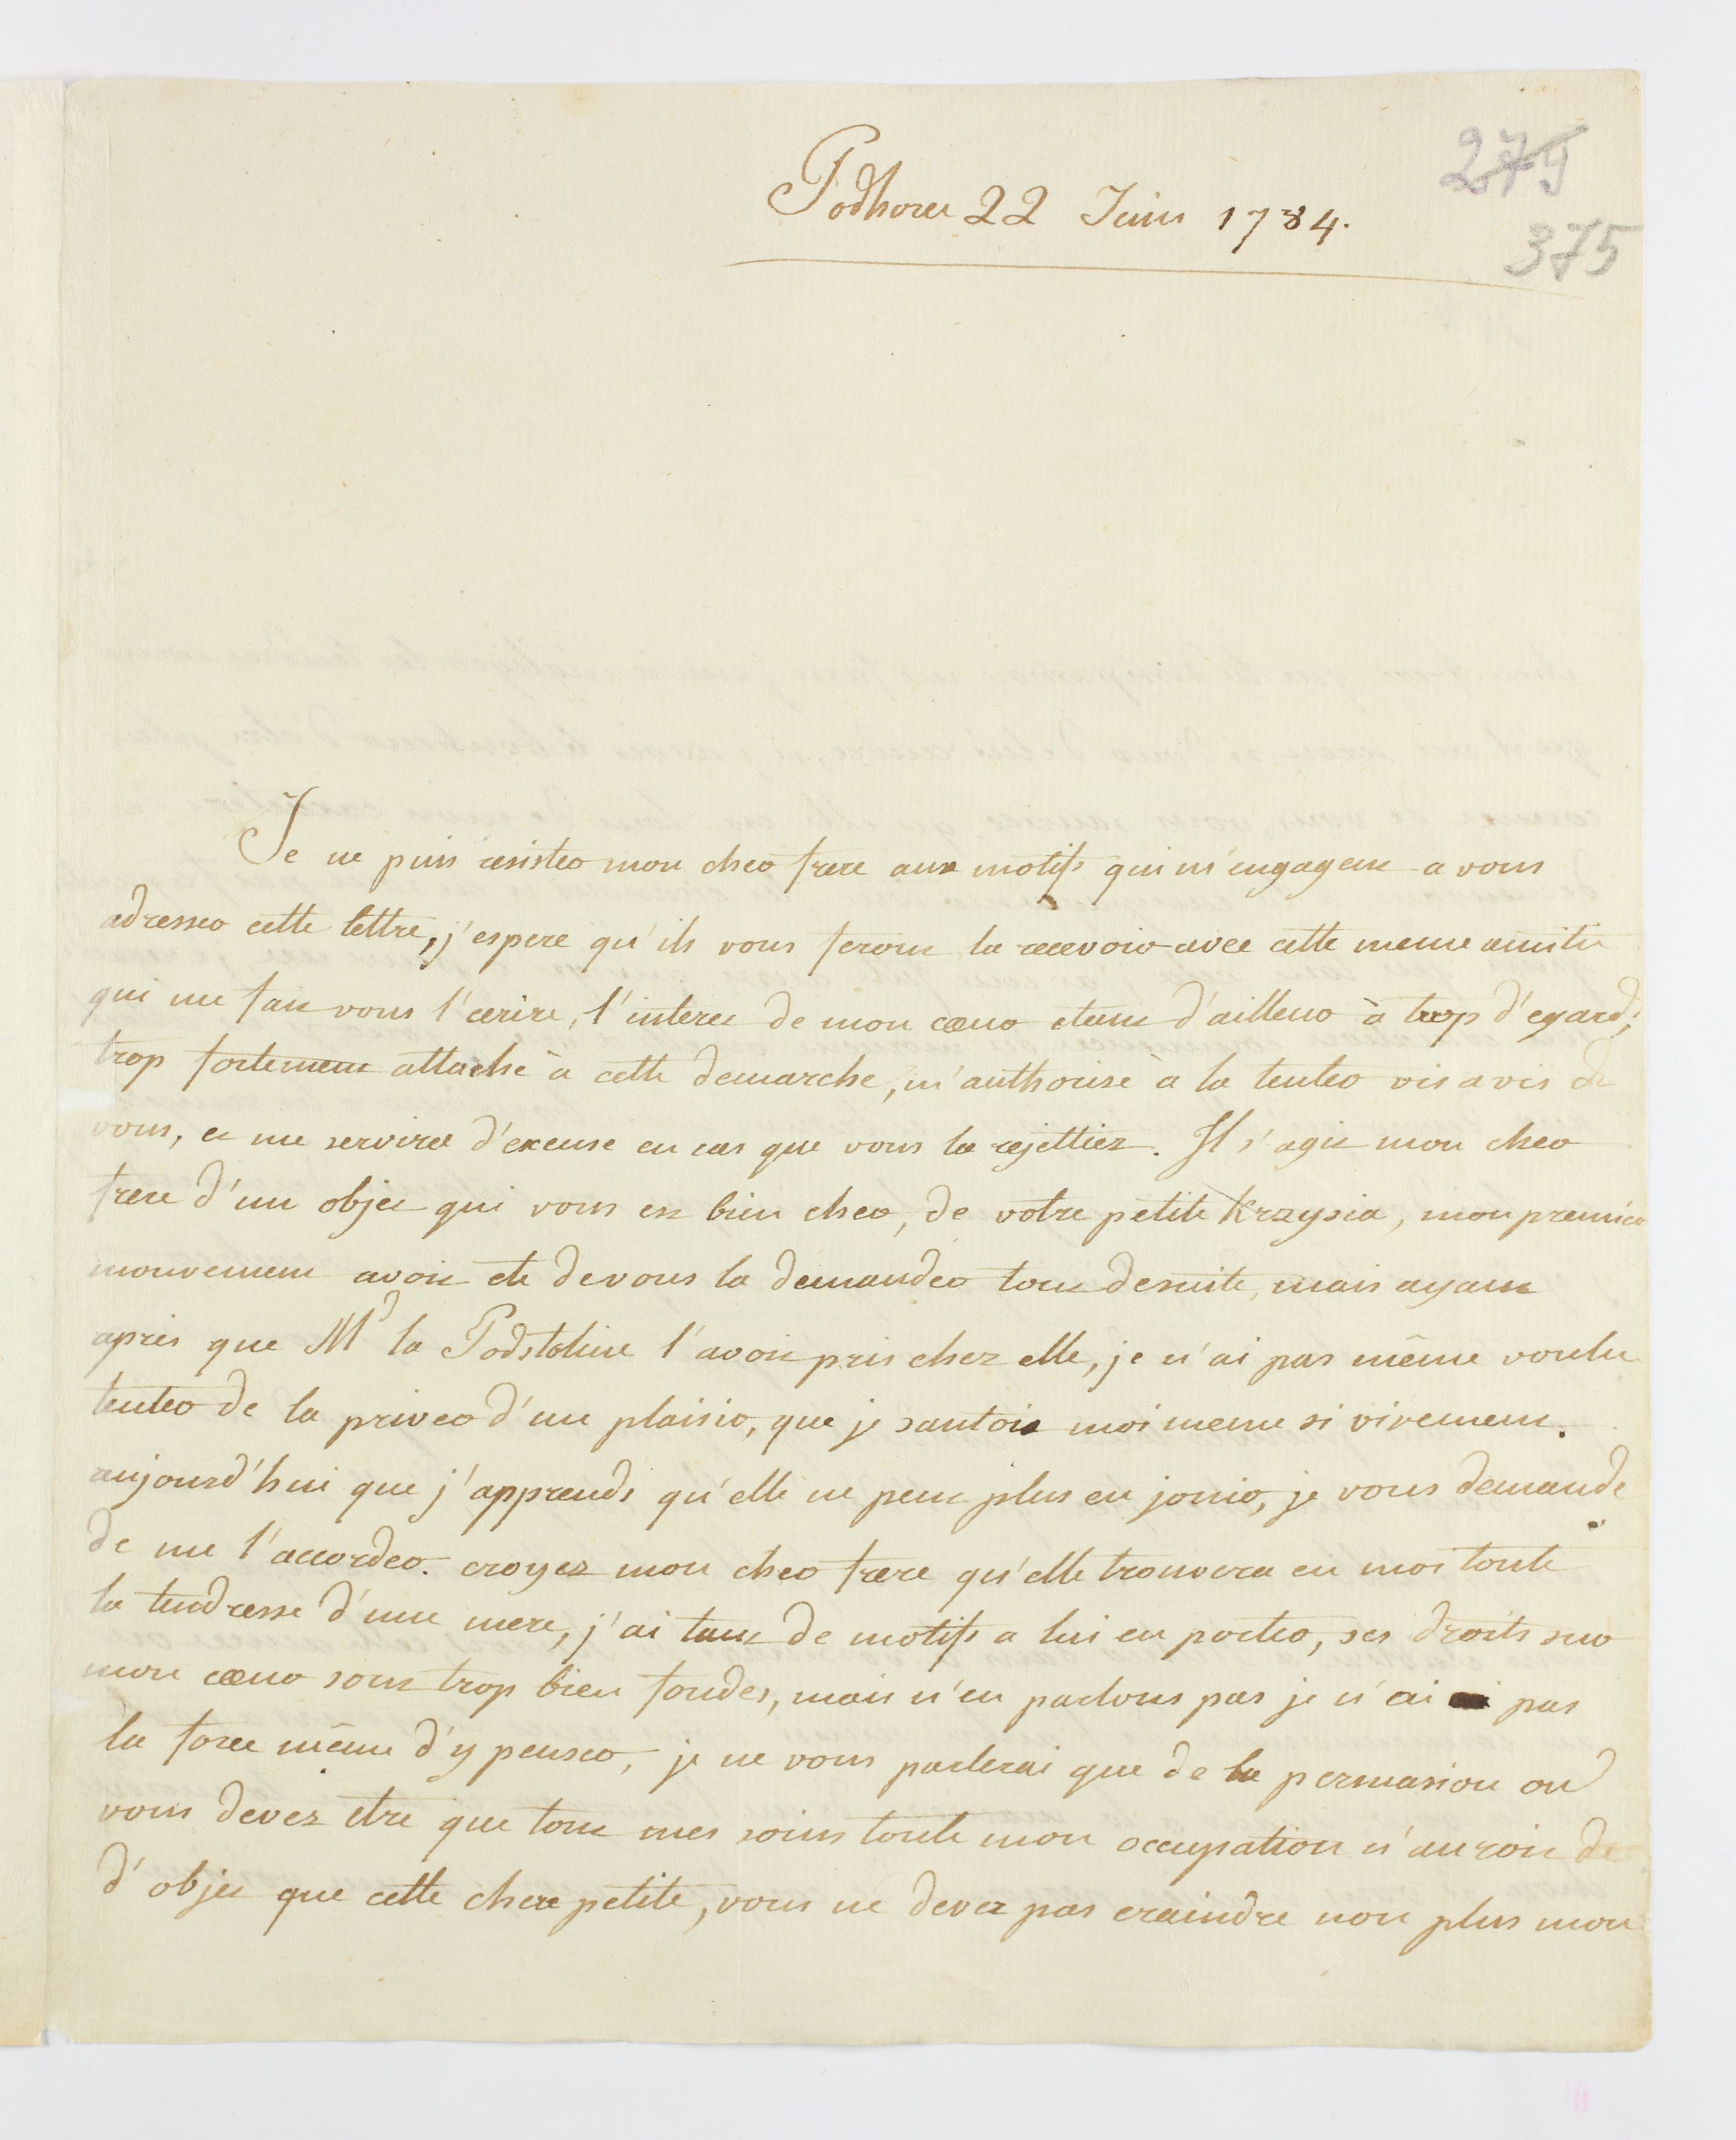 279
Podhorce 22 Juin 1784.
375
Je ne puis resister mon cher frere aux motifs qui m'engagent a vous
adresser cette lettre, j'espere qu'ils vous feront la recevoir avec cette meme amitié
qui me fait vous l'ecrire, l'interet de mon cœur etant d'ailleur à trop d'egard,
trop fortement attaché à cette demarche, m'authorise à la tenter vis a vis de
vous, et me servira d'excuse en cas que vous la rejettiez. Il s'agit mon cher
frere d'un objet qui vous est bien cher, de votre petite Krzysia, mon premier
mouvement avoit eté de vous la demander tout desuite, mais ayant
apris que Md la Podstoline l'avoit pris chez elle, je n'ai pas même voulu
tenter de la priver d'un plaisir, que je santois moi meme si vivement.
aujourd'hui que j'apprends qu'elle ne peut plus en jouir, je vous demande
de me l'accorder. croyez mon cher frere qu'elle trouvera en moi toute
la tendresse d'une mere, j'ai tant de motifs a lui en porter, ses droits sur
mon cœur sont trop bien fondés, mais n'en parlons pas je n'ai pas
la force même d'y penser, je ne vous parlerai que de la persuasion ou
vous devez etre que tout mes soins toute mon occupation n'auroit de
d'objet que cette chere petite, vous ne devez pas craindre non plus mon